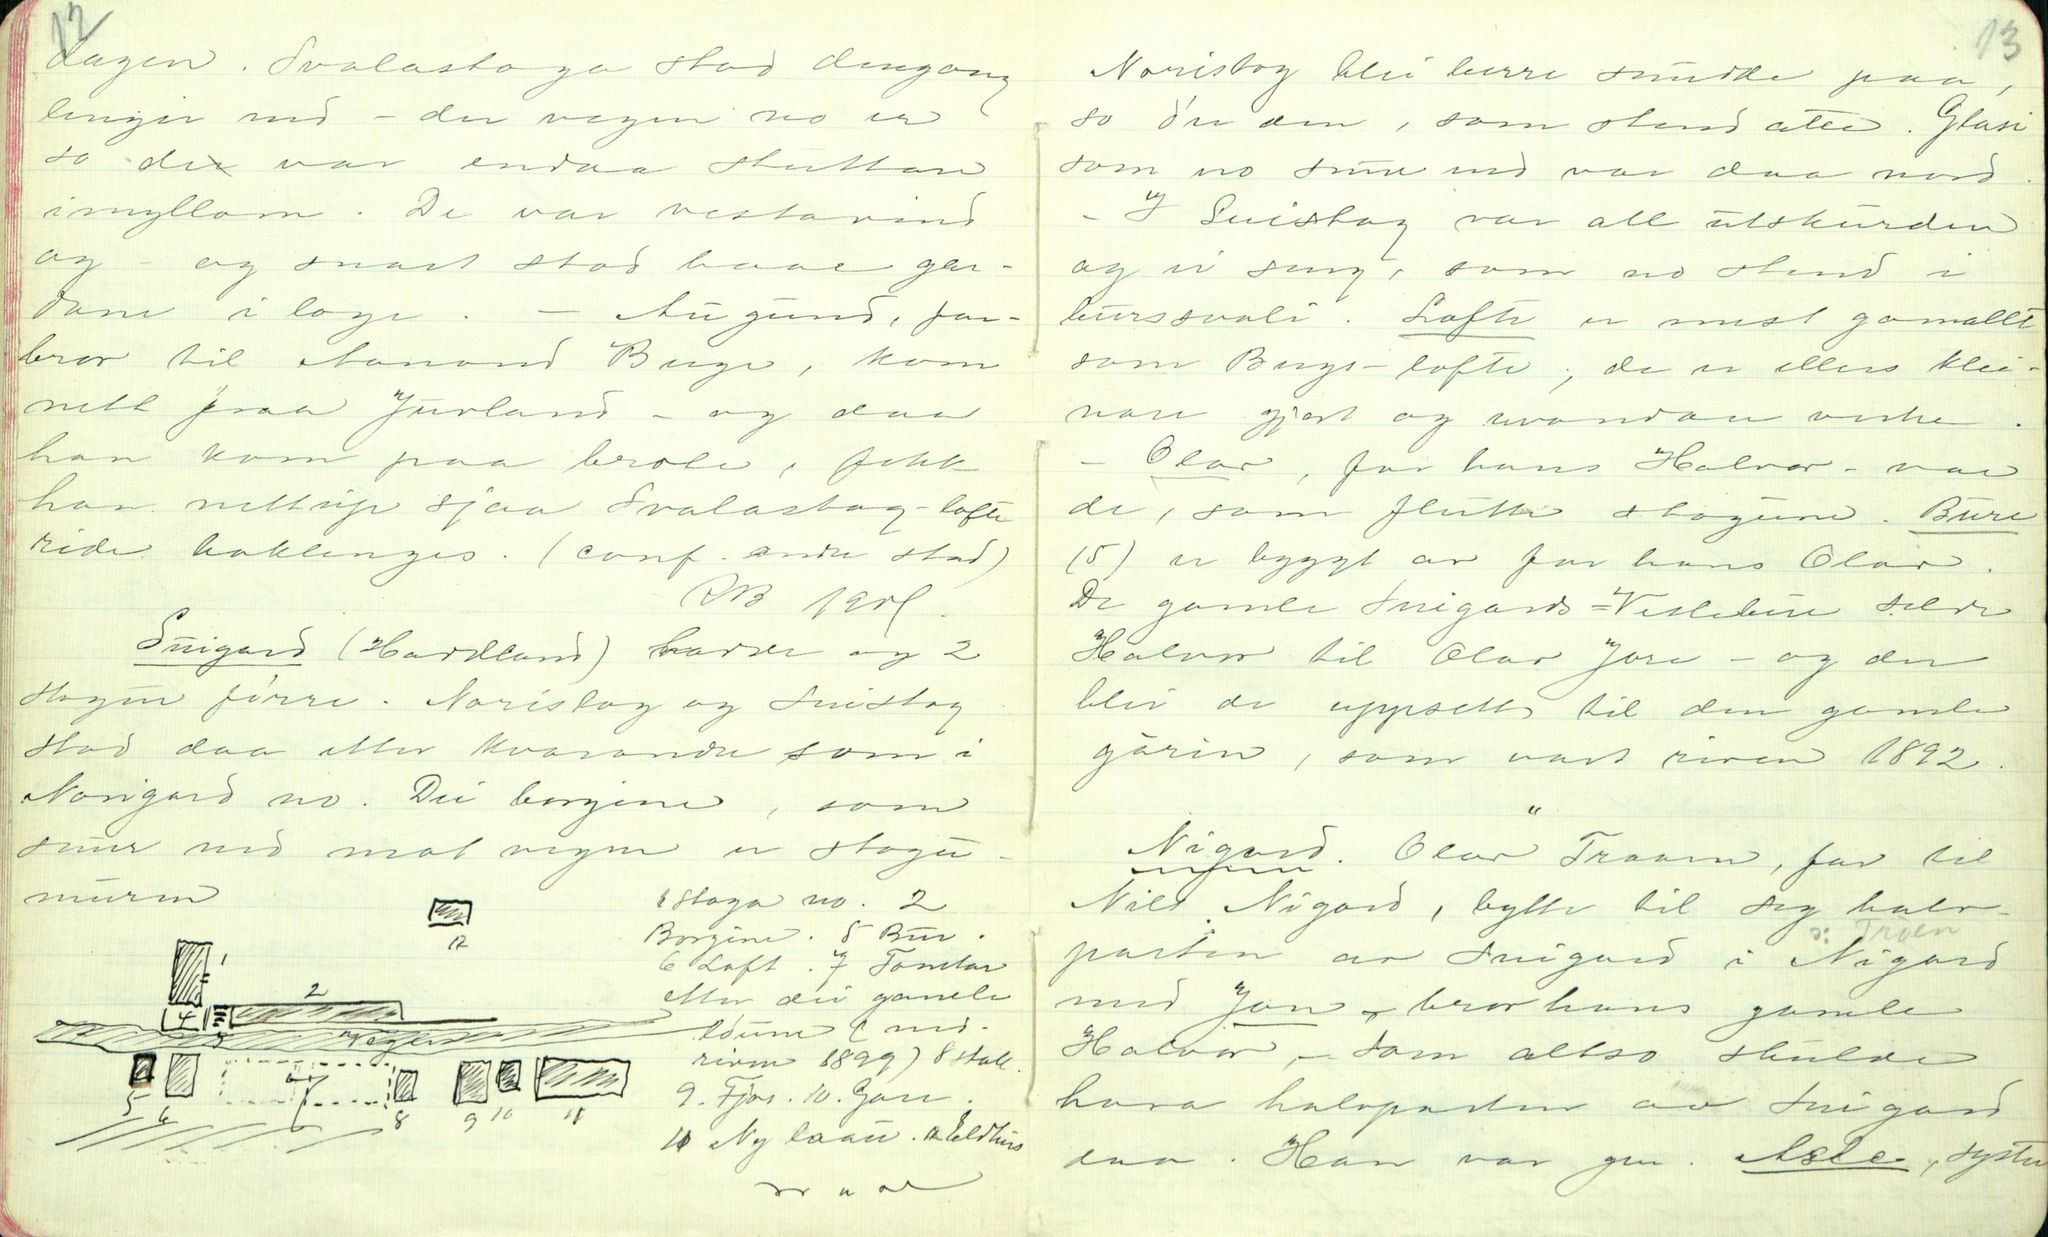 12
dagen. Svalastoga stod dengong
lenger ned - der vegen no er
so dex var endaa stuttare
imyllom. De var vestavind
og - og snart stod baae gar-
dane i loge. - Augund, far-
bror til Aanond Buge, kom
nett fraa Jurland - og daa
han kom paa brote, fekk
han nettup sjaa Svalastog-lofte
ride baklenges. (conf. andre stad)
RB
Suigard (Haddland) hadde og 2
stogur fórre. Noristog og Suistog
stod daa etter kvarandre som i
Norigard no. Dei borgine, som
snur ned mot vegen er stogu-
muren
1 Stoga no. 2
Borgine. 5 Bur.
6 Loft. 7 Tomtar
etter dei gamle
lóune (ned-
rivne 1899) 8 stall.
9. Fjos. 10. Gare.
11 Ny laau. 12 Eldhus
12
1
2
4
3
Vegen
5
6
7
8
9
10
11
13
Noristog blei berre snudde paa,
so d'er den, som stend atte. Glasi
som no snur ned var daa nord.
- I Suistog var all utskurden
og ei seng, som no stend i
burssvali. Lofte er mest gamallt
som Bugs-lofte; de er ellers klei-
nare gjort og uvandare verke.
- Olav, far hans Halvor - var
de, som flutte stogune. Bure
(5) er bygt av far hans Olav.
De gamle Suigards=Veslebure selde
Halvor til Olav Jore - og der
blei de uppsett til den gamle
gärin, som vart riven 1892.
"
Nigard. Olav Traaen, far til
Nils Nigard, bytte til seg halv-
ɔ: Troen
parten av Suigard i Nigard
med Jon, bror hans gamle
Halvor, - som altso skulde
hava halvparten av Suigard
daa. Han var gm. Asle, syster